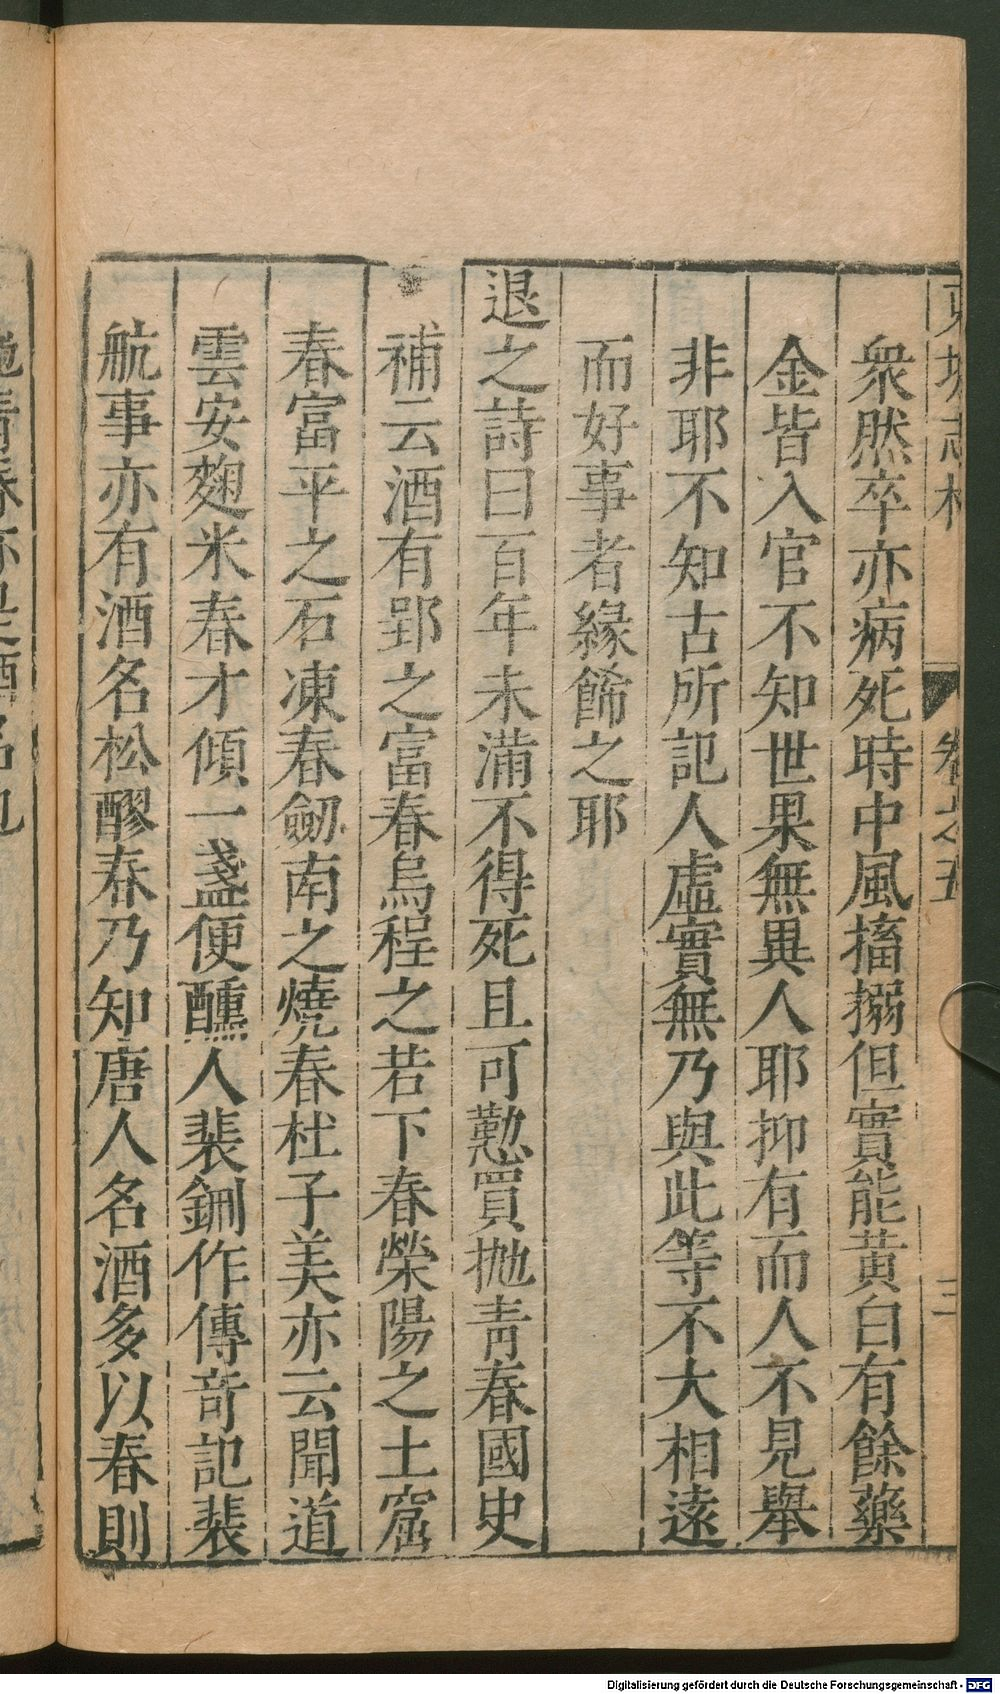 東坡志林 卷之五 三
衆然卒亦病死時中風搐搦但實能黃白有餘藥
金皆入官不知世果無異人耶抑有而人不見舉
非耶不知古所記人虛實無乃與此等不大相遠
而好事者緣餙之耶
退之詩曰百年未滿不得死且可懃買拋青春國史
補云酒有郢之富春烏程之若下春榮陽之土窟
春富平之石凍春劒南之燒春杜子美亦云聞道
雲安麴米春才傾一盞便醺人裴鉶作傳竒記裴
航事亦有酒名松醪春乃知唐人名酒多以春則
拋青春亦是酒名也
Digitalisierung gefördert durch die Deutsche Forschungsgemeinschaft - DFG